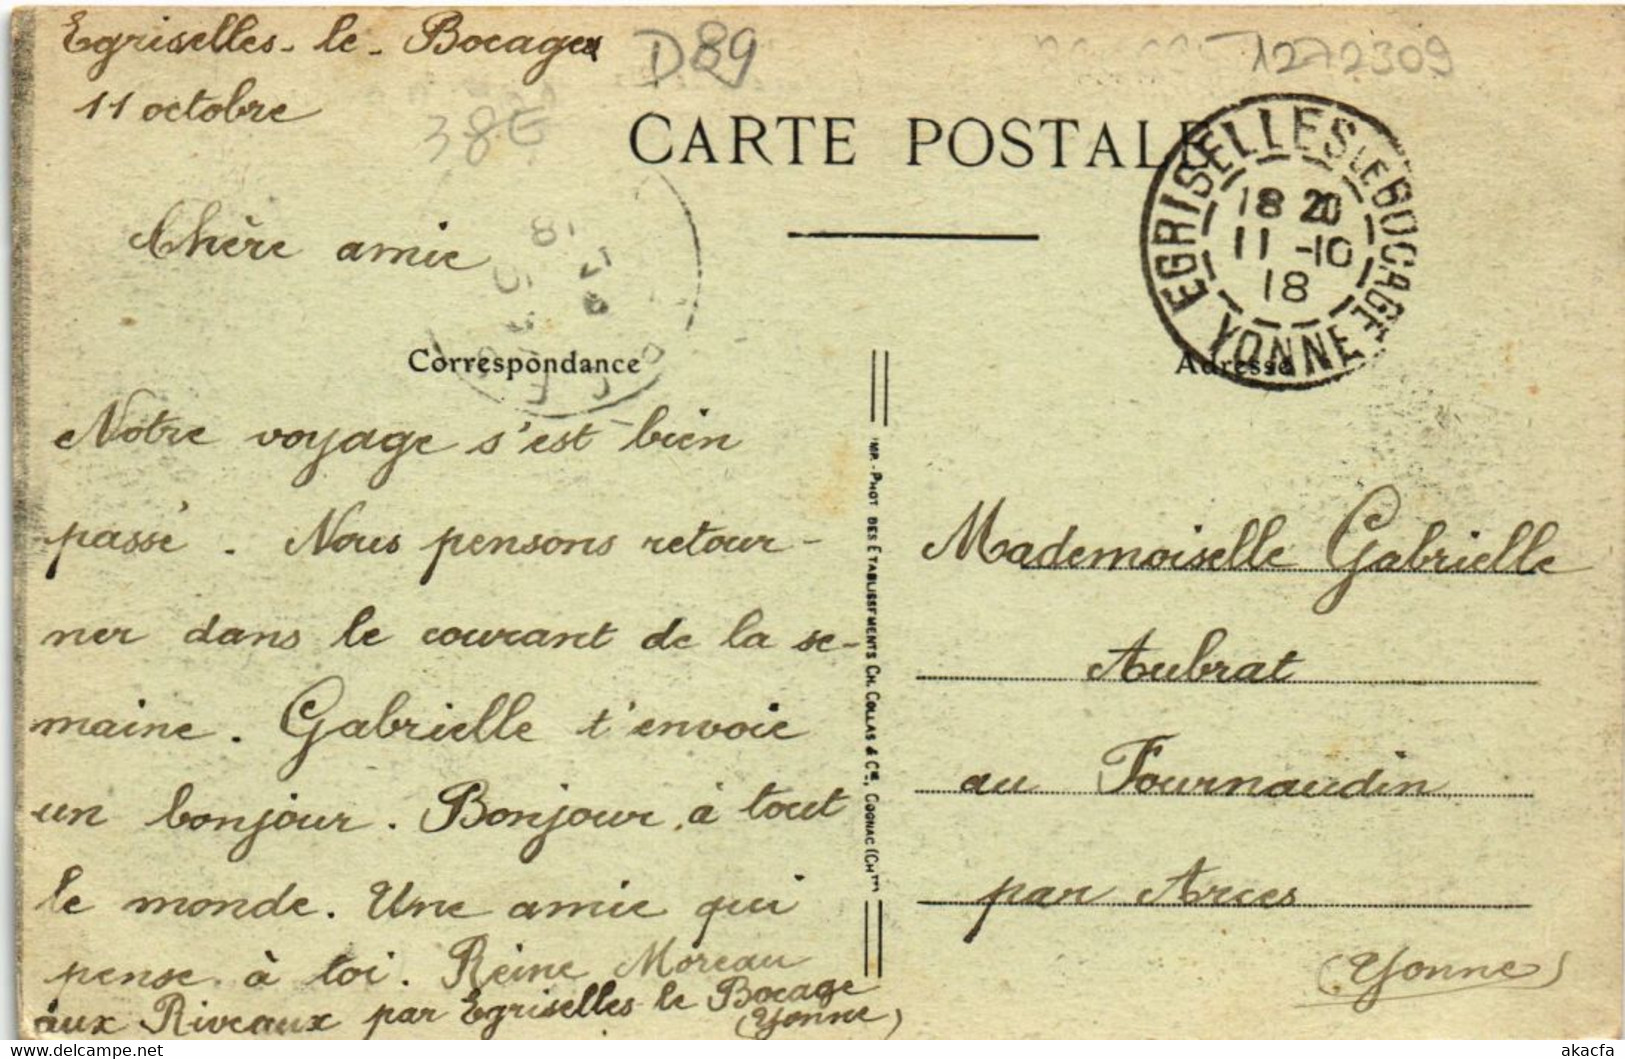 Egriselles-le-Bocage
11 octobre
D89
1272309
38E
CARTE POSTALE
EGRISELLES LE BOCAGE
18 20
11 -10
18
YONNE
Chère amie
Correspondance
Adresse
Notre voyage s'est bien
passé. Nous pensons retour-
ner dans le courant de la se-
maine. Gabrielle t'envoie
un bonjour. Bonjour à tout
le monde. Une amie qui
pense à toi. Reine Moreau
aux Riveaux par Egriselles le Bocage
(Yonne)
IMP.-PHOT DES ETABLISSEMENTS CH. COLLAS & Cie, COGNAC (CHte)
Mademoiselle Gabrielle
Aubrat
au Fournaudin
par Arces
(Yonne)
akacfa